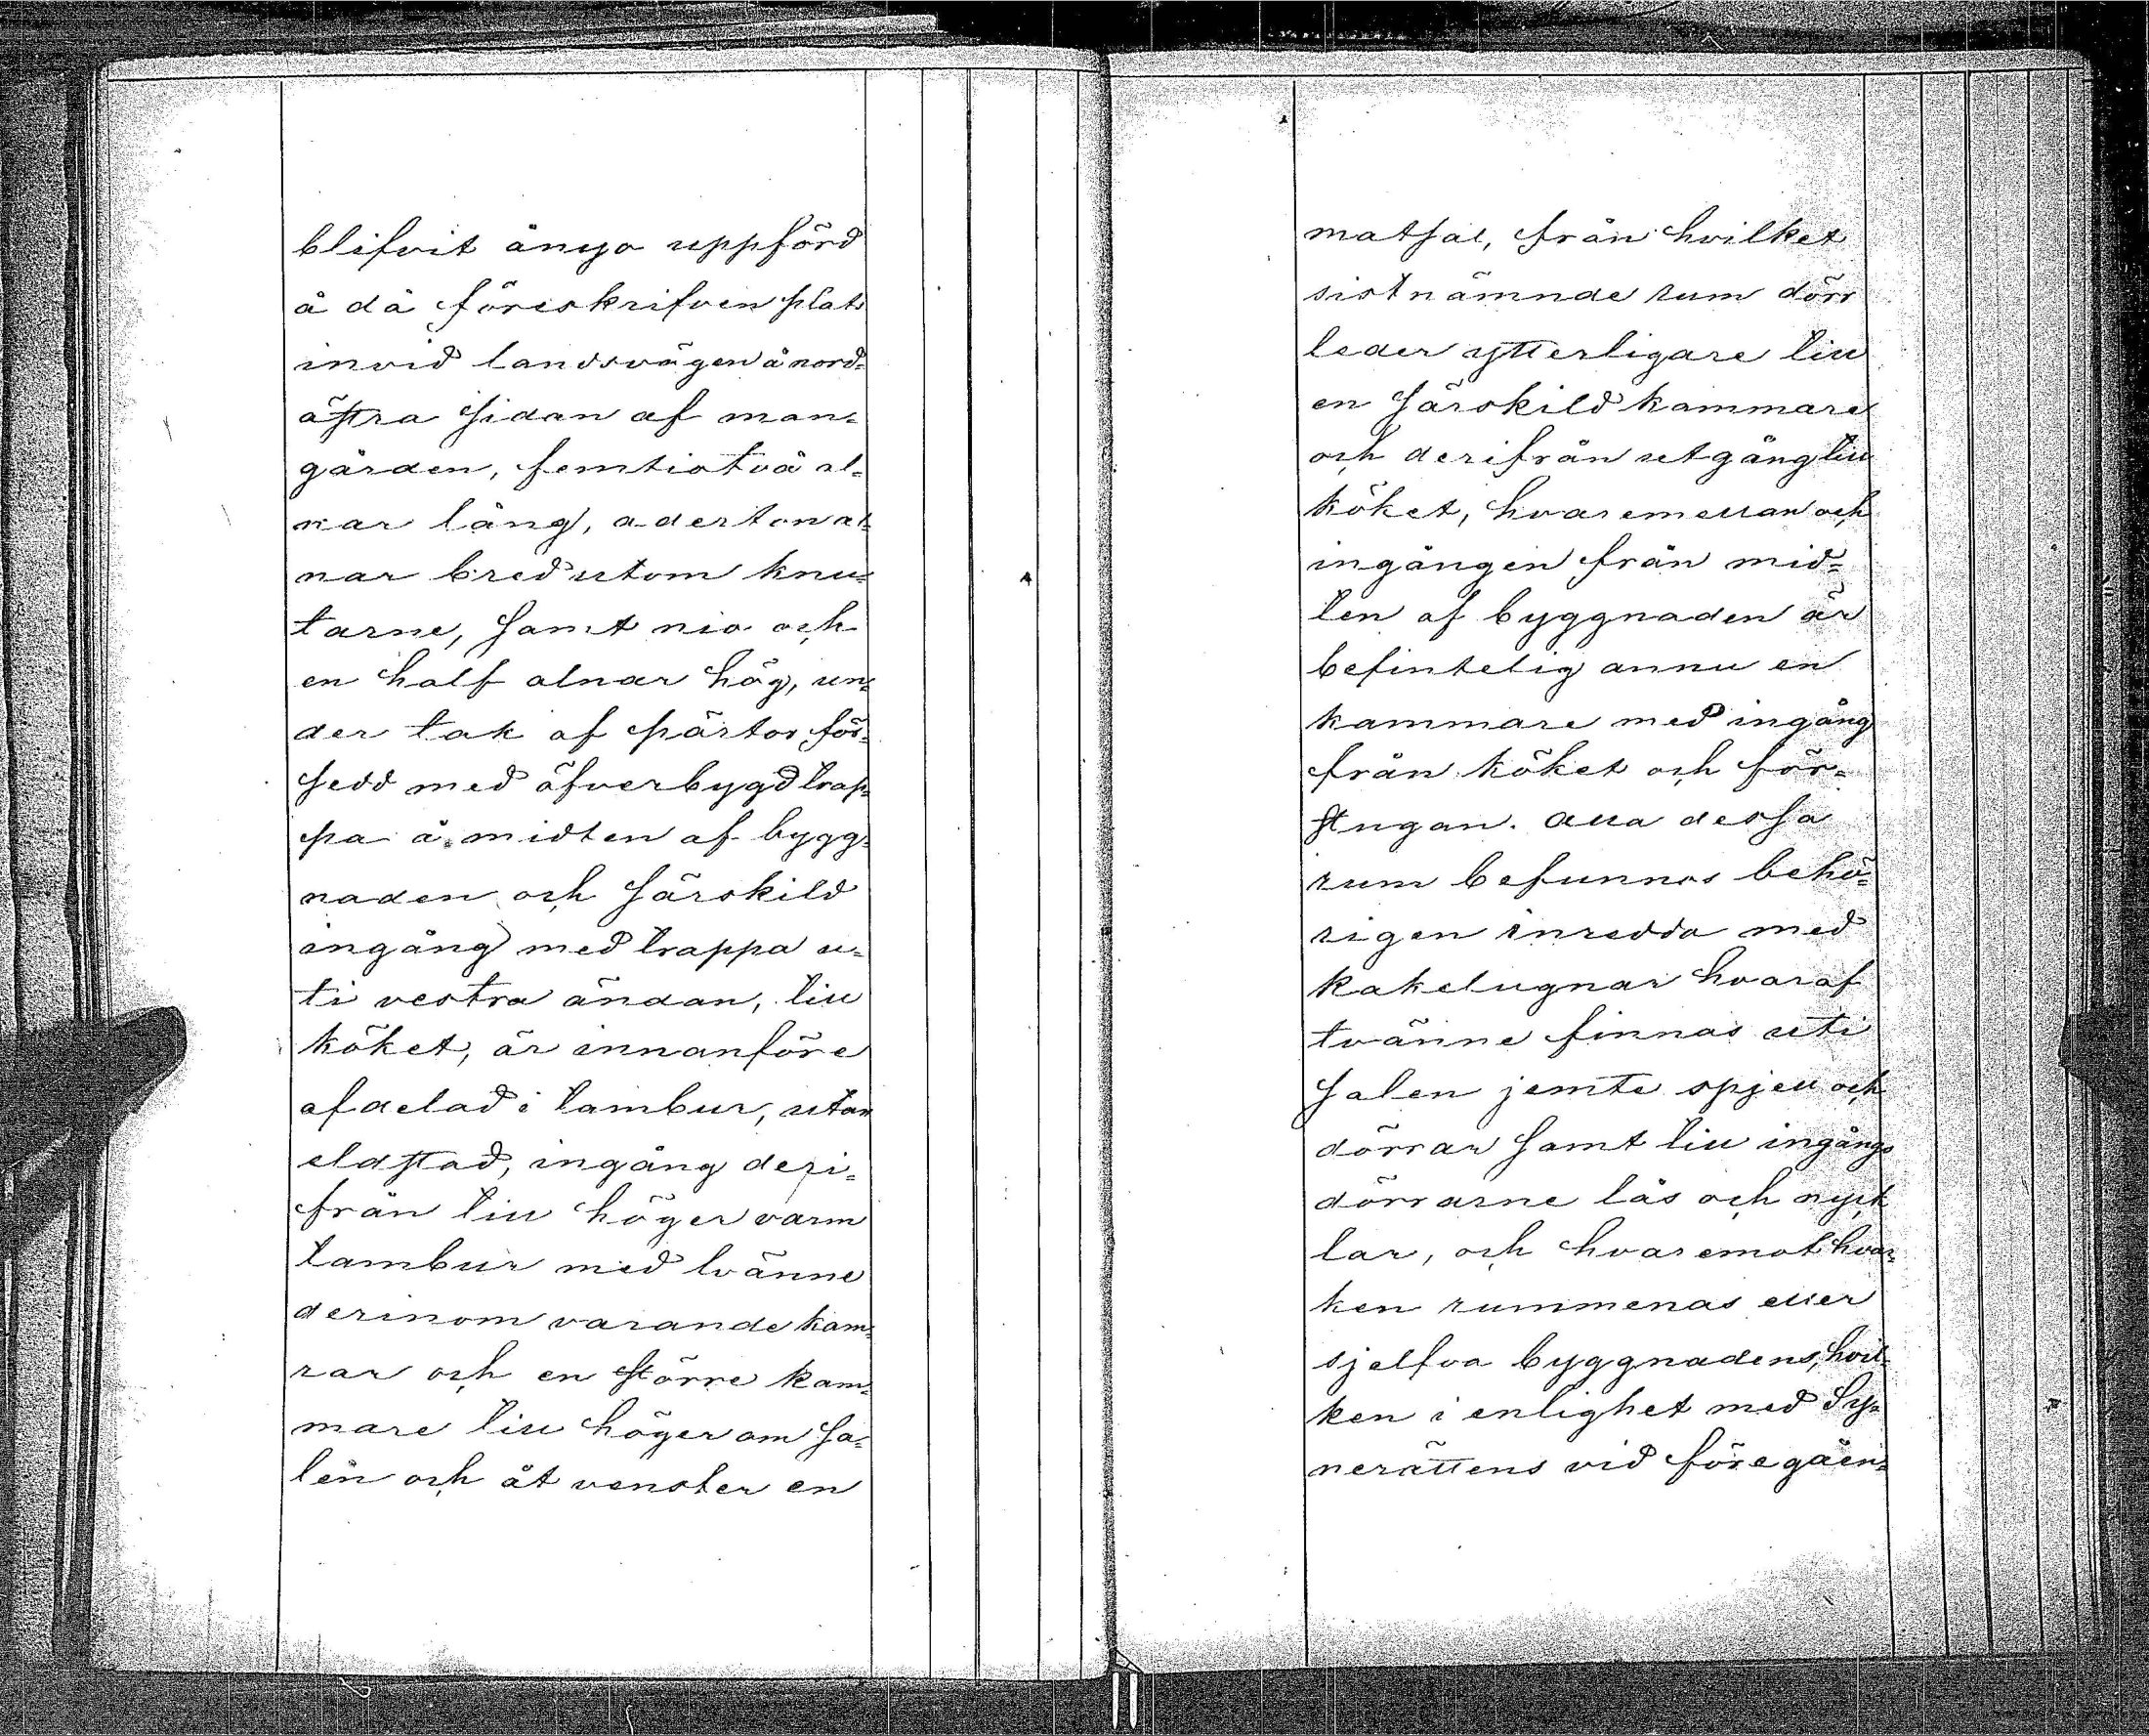 blifvit ånyo uppförd
å då föreskrifven plats
invid landsvägen å nord=
östra sidan af man=
gården, femtiotvå al=
nar lång, aderton al=
nar bred utom knu=
tarne, samt nio och
en half alnar hög, un=
der tak af pärtor för=
sedd med öfverbygd trap=
pa å midten af bygg=
naden och särskild
ingång med trappa u=
ti vestra ändan, till
köket, är innanföre
afdelad i tambur, utan
eldstad, ingång deri=
från till höger varm
tambur med tvänne
derinom varande kam=
rar och en större kam=
mare till höger om sa=
len och åt venster en
matsal, från hvilket
sistnämnde rum dörr
leder ytterligare till
en särskild kammare
och derifrån utgång till
köket, hvaremellan och
ingången från mid=
ten af byggnaden är
befintelig annu en
kammare med ingång
från köket och för=
stugan. Alla dessa
rum befunnos behö=
rigen inredda med
kakelugnar hvaraf
tvänne finnas uti
salen jemte spjell och
dörrar samt till ingångs
dörrarne lås och nyck
lar, och hvaremot hvar=
ken rummenas eller
sjelfva byggnadens, hvil=
ken i enlighet med Sy=
nerättens vid föregåen=